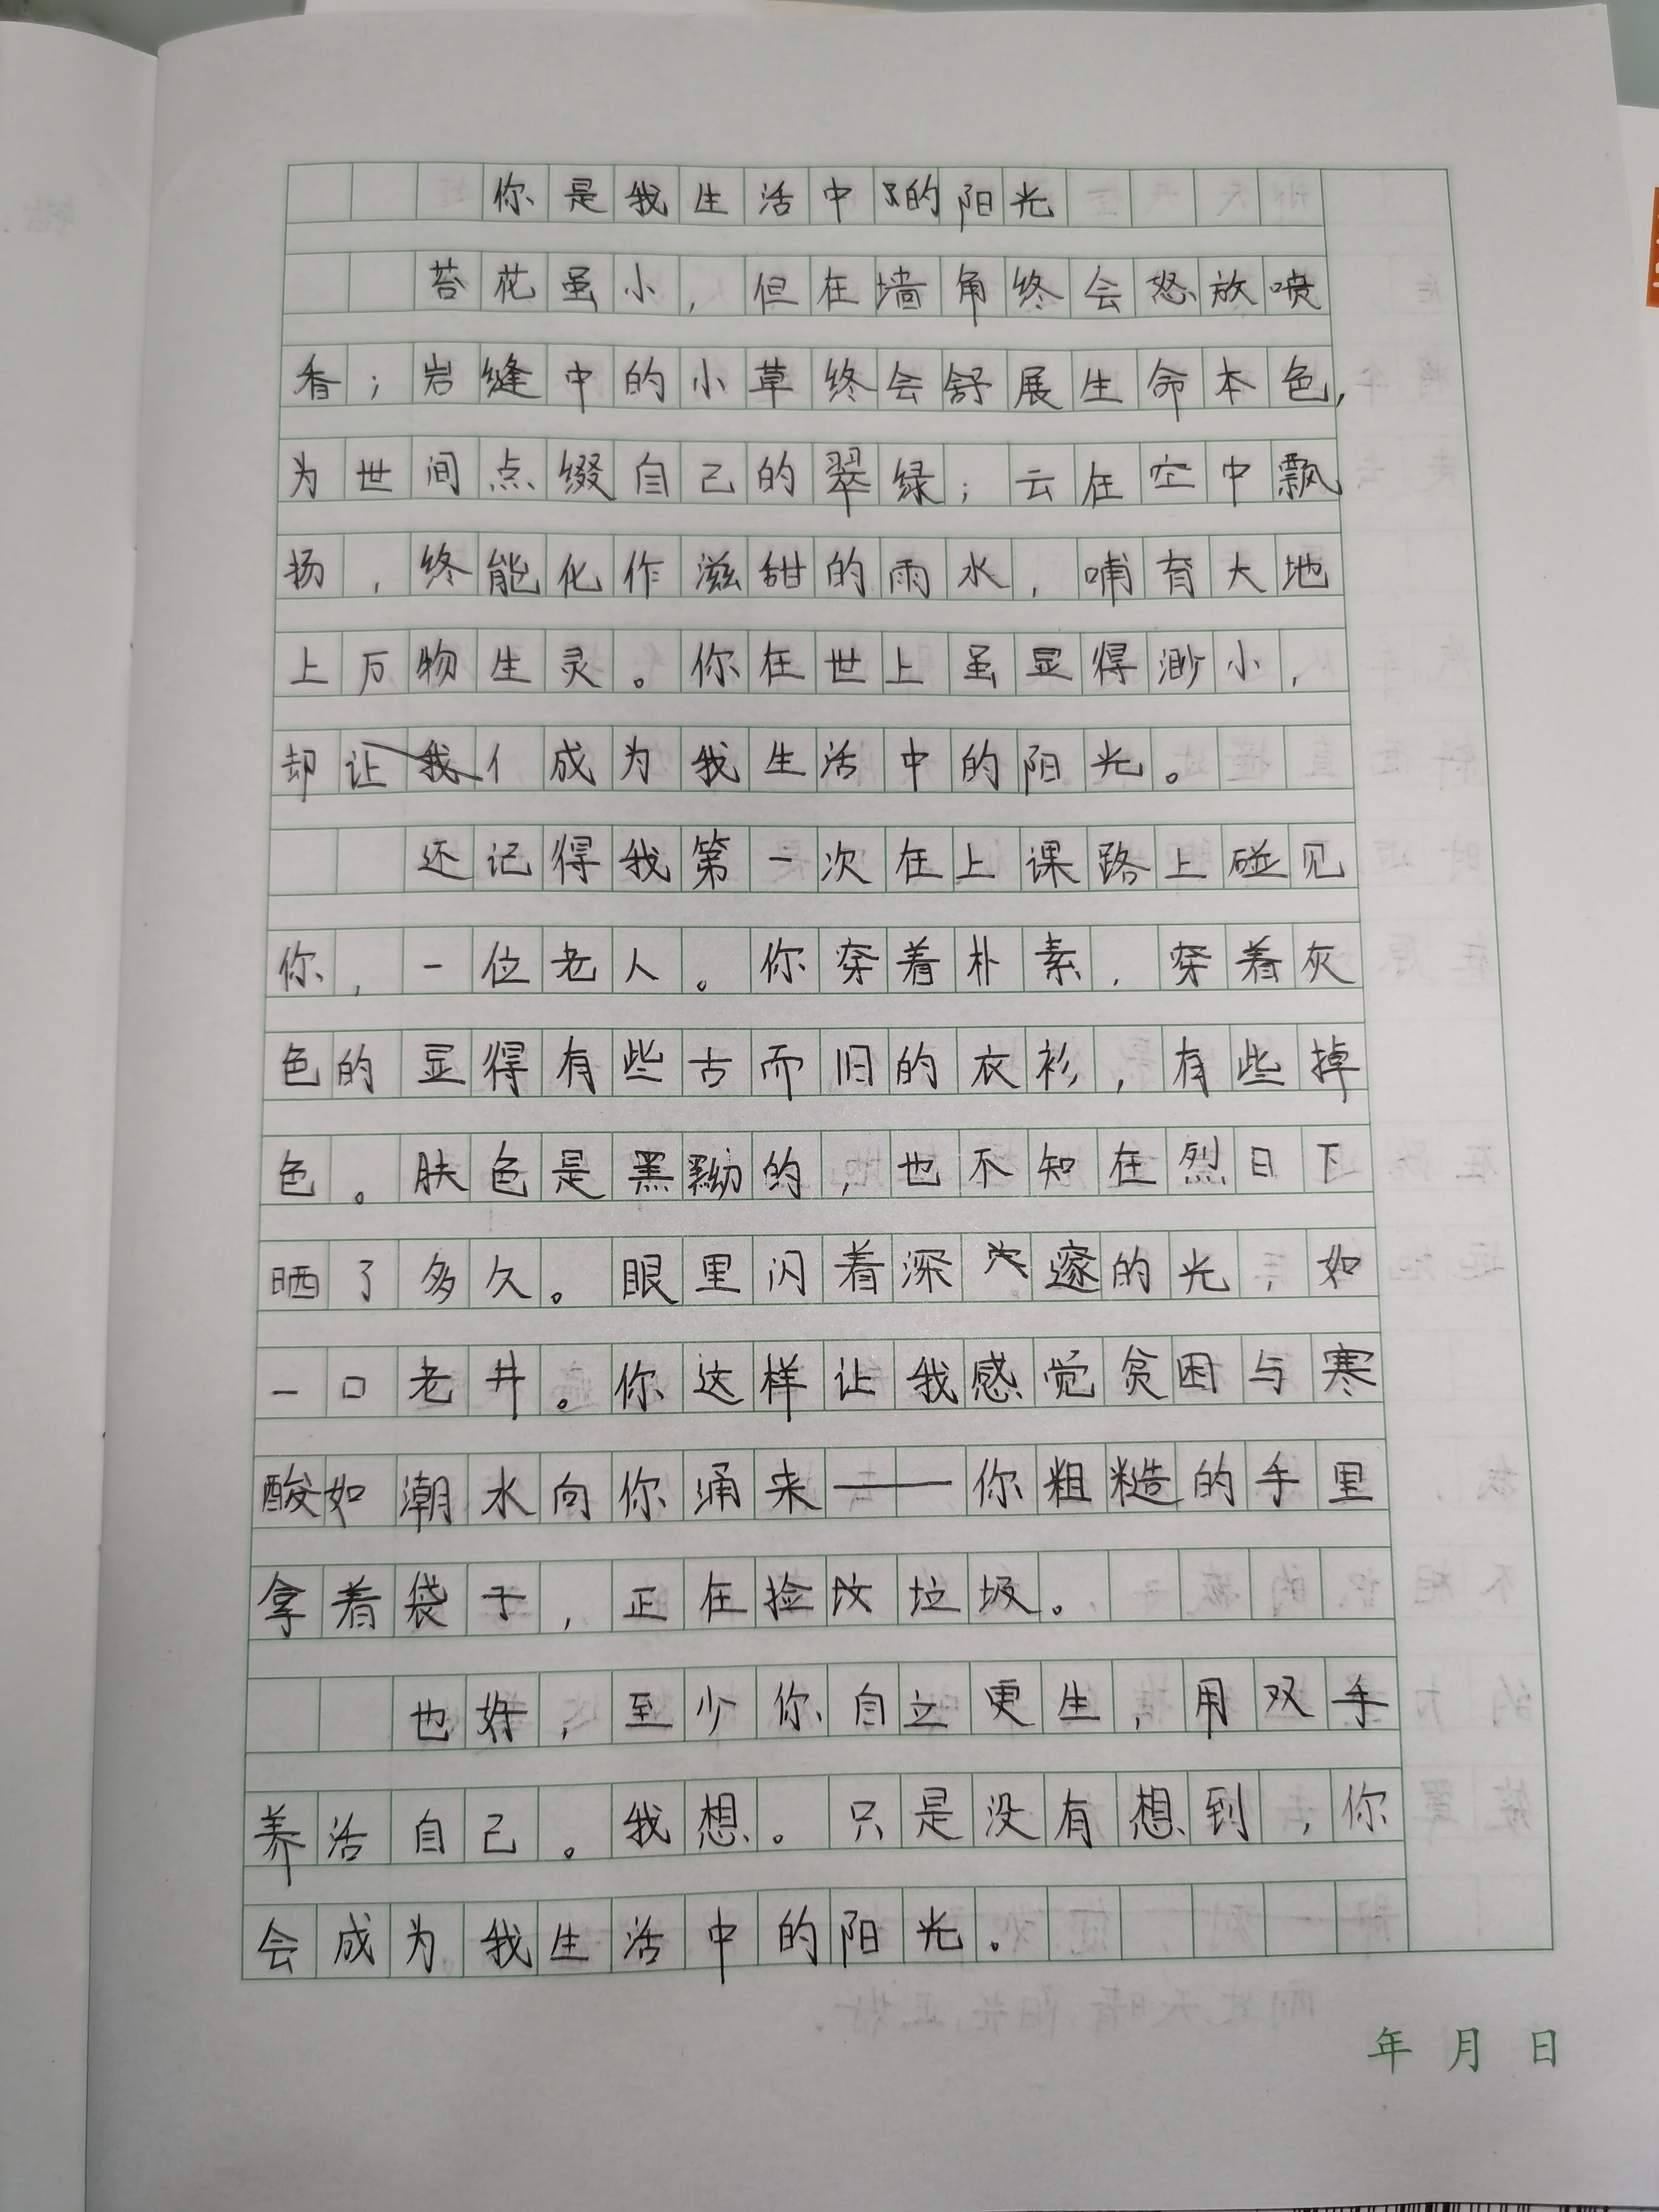 你是我生活中的阳光
苔花虽小，但在墙角终会怒放喷
香；岩缝中的小草终会舒展生命本色，
为世间点缀自己的翠绿；云在空中飘
扬，终能化作滋甜的雨水，哺育大地
上万物生灵。你在世上虽显得渺小，
却成为我生活中的阳光。
还记得我第一次在上课路上碰见
你，一位老人。你穿着朴素，穿着灰
色的显得有些古而旧的衣衫，有些掉
色。肤色是黑黝的，也不知在烈日下
晒了多久。眼里闪着深邃的光，如
一口老井。你这样让我感觉贫困与寒
酸如潮水向你涌来——你粗糙的手里
拿着袋子，正在捡垃圾。
也好，至少你自立更生，用双手
养活自己。我想。只是没有想到，你
会成为我生活中的阳光。
年 月 日